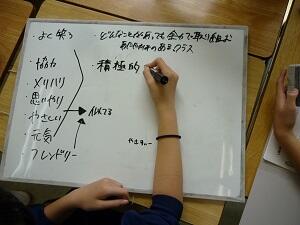 ・よく笑う
・協力
・メリハリ
・思いやり
・やさしい
・元気
・フレンドリー
似てる
・どんなことがあっても全力で取り組む
あたたかみのあるクラス
・積極的